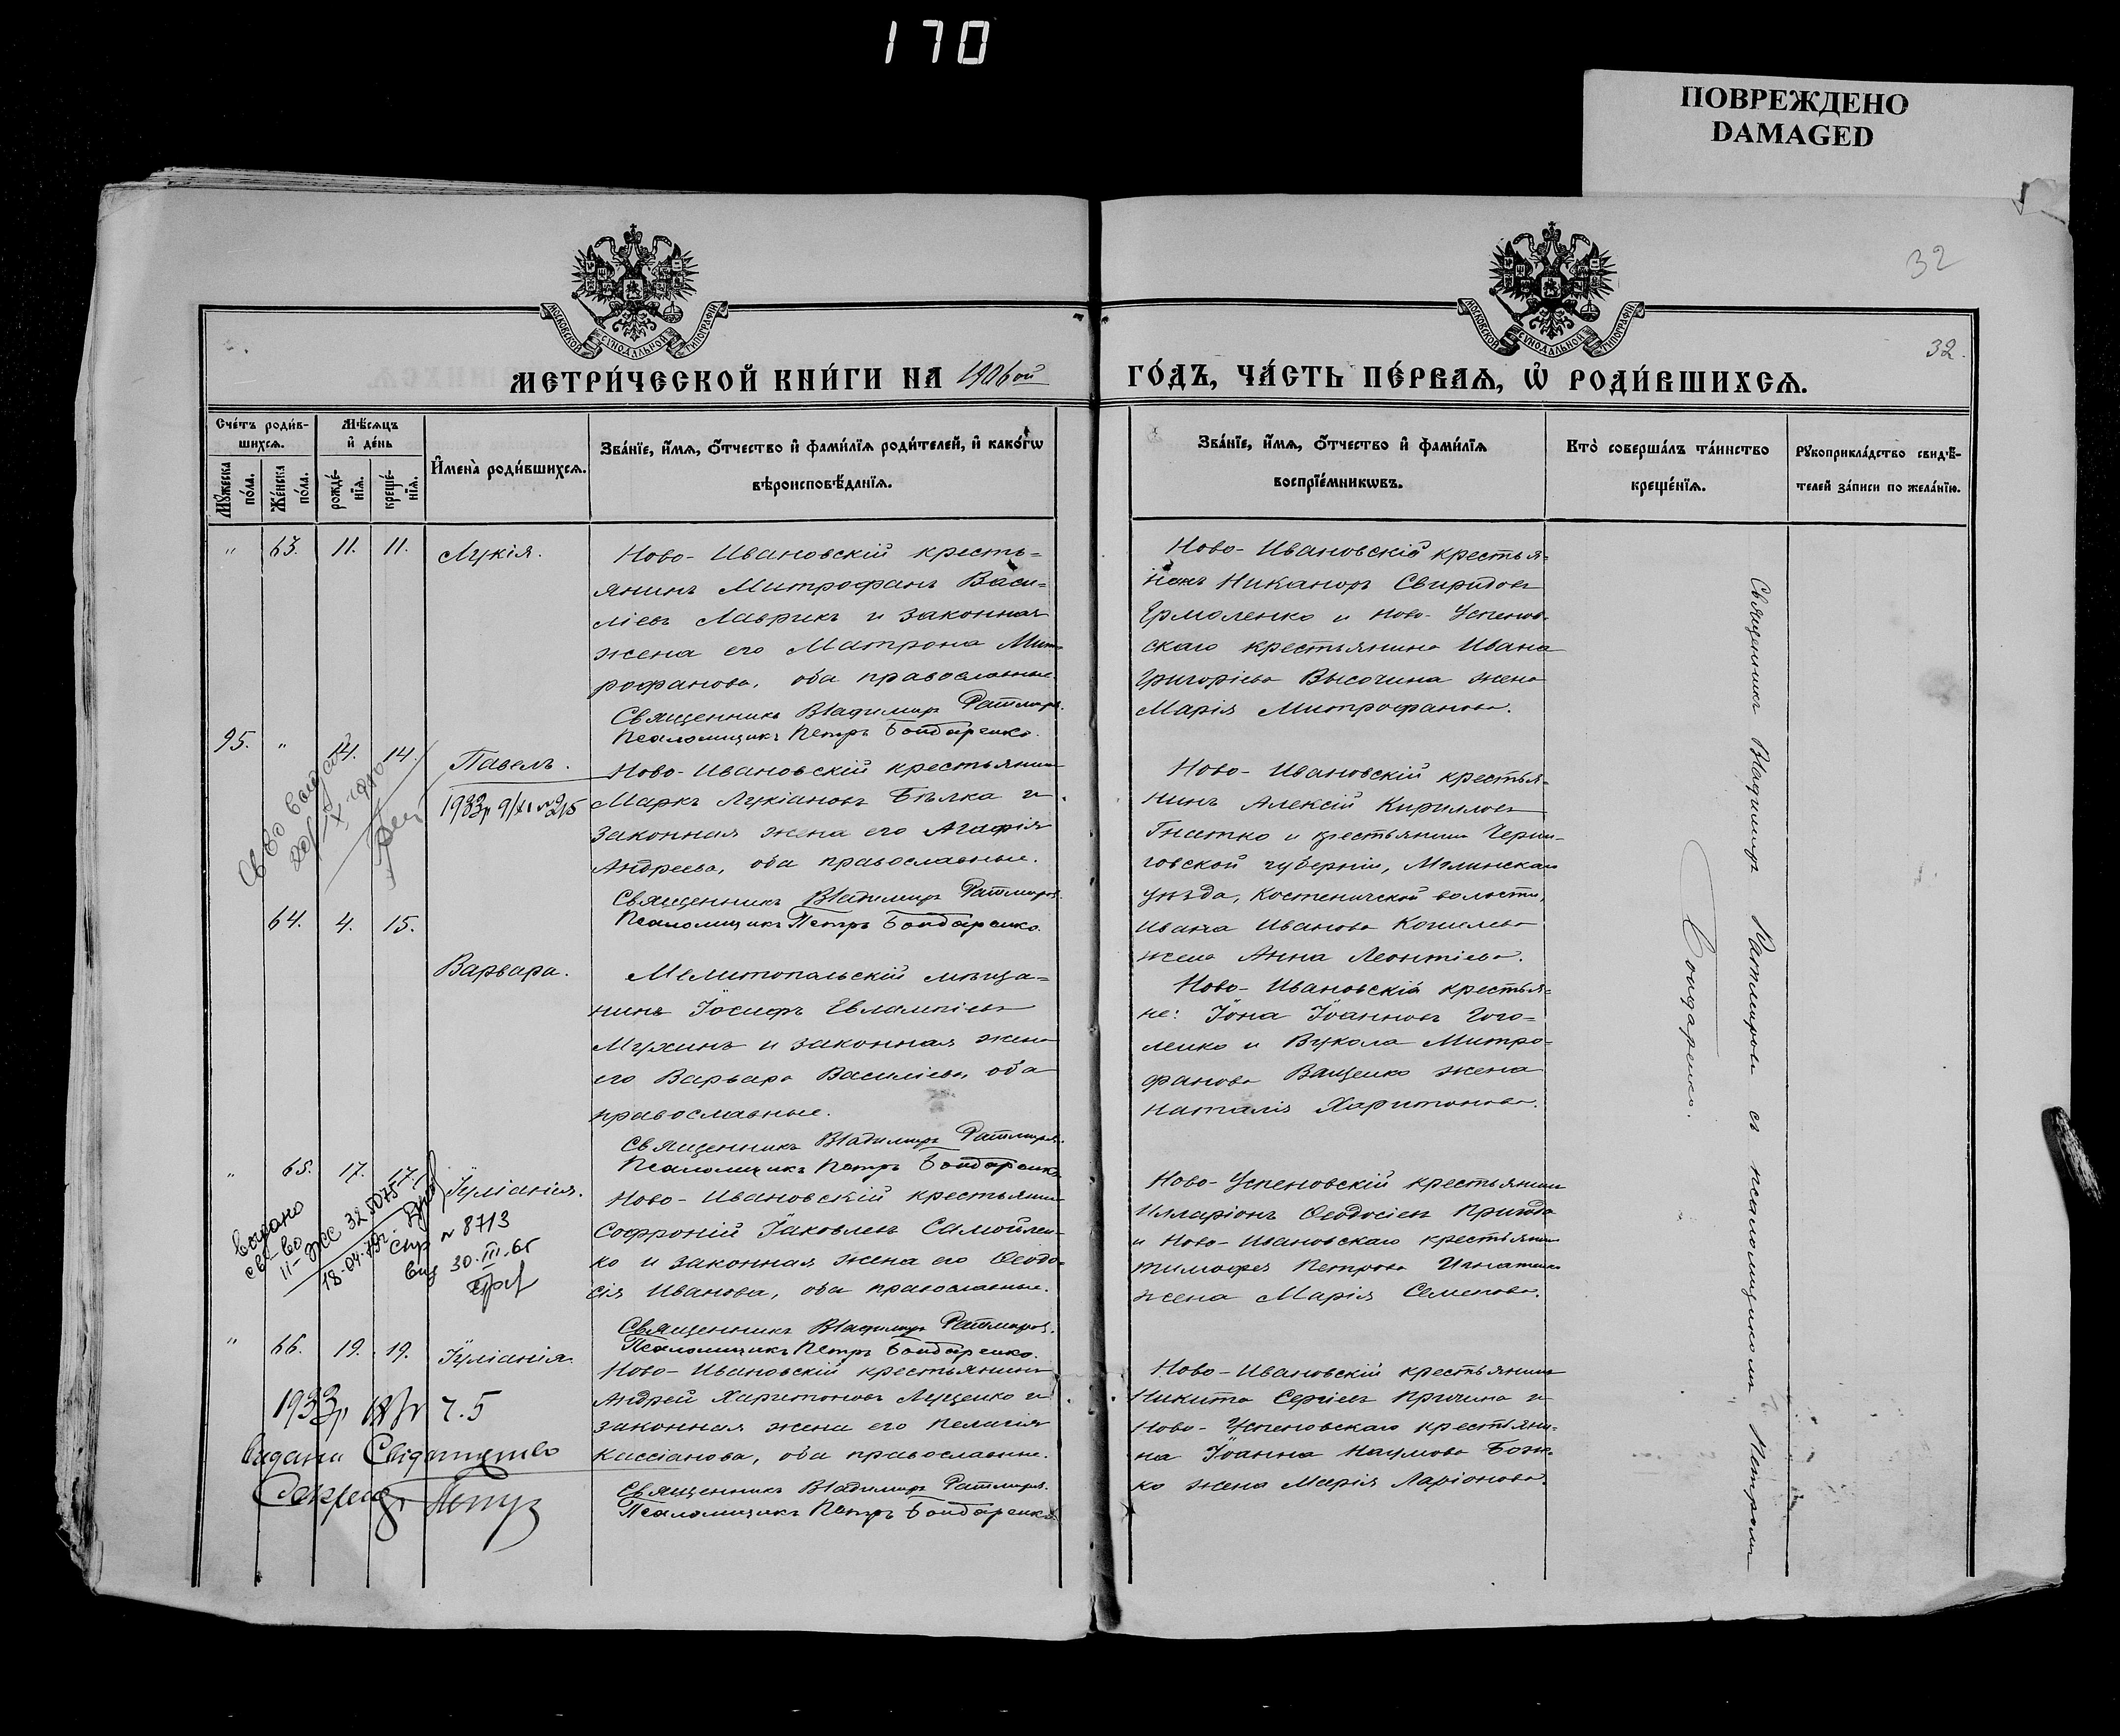 170
ПОВРЕЖДЕНО
DAMAGED
32
32.
МОСКОВСКОЙ СУНОДАЛЬНОЙ ТИПОГРАФІИ
МОСКОВСКОЙ СУНОДАЛЬНОЙ ТИПОГРАФІИ
МЕТРИ́ЧЕСКОЙ КНИ́ГИ НА 1906 ой
ГО́ДЪ, ЧА́СТЬ ПЕ́РВАѦ, Ѡ҆ РОДИ́ВШИХСѦ.
Сче́тъ роди́в-
шихсѧ.
Мѣ́сѧцъ
и҆ де́нь
Мꙋ́жеска по́ла.
Же́нска по́ла.
рожде́-нїѧ.
креще́-нїѧ.
И҆мена̀ роди́вшихсѧ.
Зва́нїе, и҆́мѧ, ѻ҆́тчество и҆ фами́лїѧ роди́телей, и҆ како́гѡ
вѣроисповѣ́данїѧ.
Зва́нїе, и҆́мѧ, ѻ҆́тчество и҆ фами́лїѧ
воспрїе́мникѡвъ.
Кто̀ соверша́лъ та́инство
креще́нїѧ.
Рꙋкоприкла́дство свидѣ́-
телей за́писи по жела́нїю.
" 63. 11. 11. Лукія.
Ново-Ивановскій кресть=
янинъ Митрофанъ Васи=
ліевъ Лаврикъ и законная
жена его Матрона Мит=
рофанова, оба православные.
Священникъ Владимиръ Ратмировъ.
Псаломщикъ Петръ Бондаренко.
Ново-Ивановскій крестья=
нинъ Никаноръ Свиридовъ
Ермоленко и Ново-Успенов=
скаго крестьянина Ивана
Григоріева Высочина жена
Марія Митрофанова.
95. " 14. 14. Павелъ.
1933р 9/XI №215
Ново-Ивановскій крестьянинъ
Маркъ Лукіановъ Бѣлка и
законная жена его Агафія
Андреева, оба православные.
Священникъ Владимиръ Ратмировъ.
Псаломщикъ Петръ Бондаренко.
Ново-Ивановскій крестья=
нинъ Алексій Кирилловъ
Гнатко и крестьянина Черни=
говской губерніи, Мглинскаго
уѣзда, Костеничской волости,
Ивана Иванова Кошелева
жена Анна Леонтіева.
64. 4. 15.
Варвара.
Мелитопольскій мѣща=
нинъ Іосифъ Евлампіевъ
Мухинъ и законная жена
его Варвара Василіева, оба
православные.
Священникъ Владимиръ Ратмировъ.
Псаломщикъ Петръ Бондаренко.
Ново-Ивановскіе крестья=
не: Іона Іоанновъ Гого=
ленко и Вукола Митро=
фанова Ващенко жена
Наталія Харитонова.
" 65. 17. 17. Іуліанія.
выдано
св-во
II-ЖС 325075
18.04.
Спр № 8713
выд 30.III.65
Ново-Ивановскій крестьянинъ
Софроній Іаковлевъ Самойлен=
ко и законная жена его Ѳеодо=
сія Иванова, оба православные.
Священникъ Владимиръ Ратмировъ.
Псаломщикъ Петръ Бондаренко.
Ново-Успеновскій крестьянинъ
Илларіонъ Ѳеодосіевъ Пригода
и Ново-Ивановскаго крестьянина
Тимофея Петрова Игнатенко
жена Марія Семенова.
" 66. 19. 19. Іуліанія.
1933р ч.5
Видани Свідоцтво
Ново-Ивановскій крестьянинъ
Андрей Харитоновъ Луценко и
законная жена его Пелагія
Кассіанова, оба православные.
Священникъ Владимиръ Ратмировъ.
Псаломщикъ Петръ Бондаренко.
Ново-Ивановскій крестьянинъ
Никита Сергіевъ Причина и
Ново-Успеновскаго крестьяни=
на Іоанна Наумова Бож=
ко жена Марія Ларіонова.
Священникъ Владимиръ Ратмировъ съ псаломщикомъ Петромъ
Бондаренко.